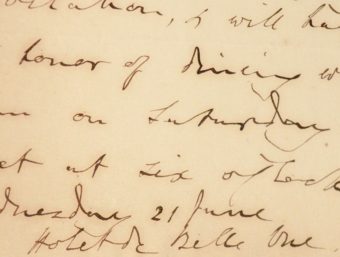 vitation, & will ha
honor of dining w
m on Saturday
xt at six o'clock
dnesday 21 June
Hotel de Belle Vue.